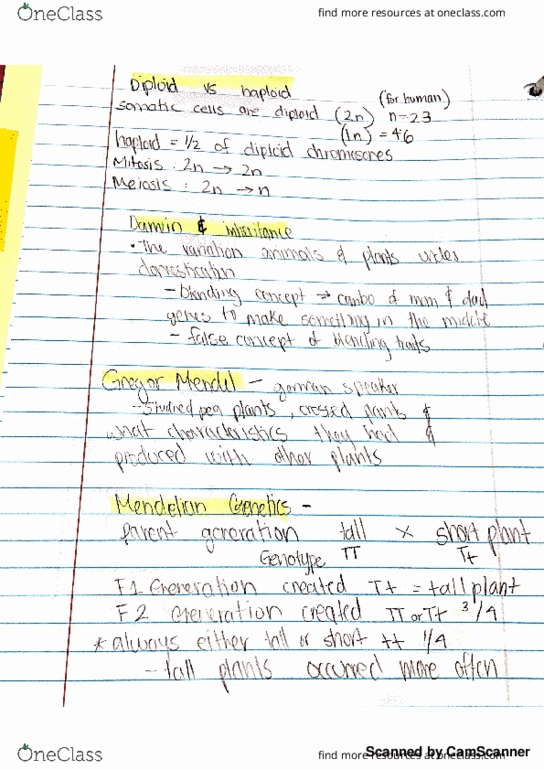 OneClass
find more resources at oneclass.com
Diploid vs haploid
(for human)
somatic cells are diploid (2n) n=23
(1n) = 46
haploid = 1/2 of diploid chromosomes
Mitosis : 2n → 2n
Meiosis : 2n → n
Darwin & inheritance
• The variation animals & plants under
domestication
- blending concept → combo of mom & dad
genes to make something in the middle
- false concept of blending traits
Gregor Mendel - german speaker
- Studied pea plants, crossed plants &
what characteristics they had &
produced with other plants
Mendelian Genetics -
parent generation tall x short plant
Genotype TT Tt
F1 Generation created Tt = tall plant
F2 Generation created TT or Tt 3/4
* always either tall or short tt 1/4
- tall plants occurred more often
OneClass
find more resources at oneclass.com
Scanned by CamScanner